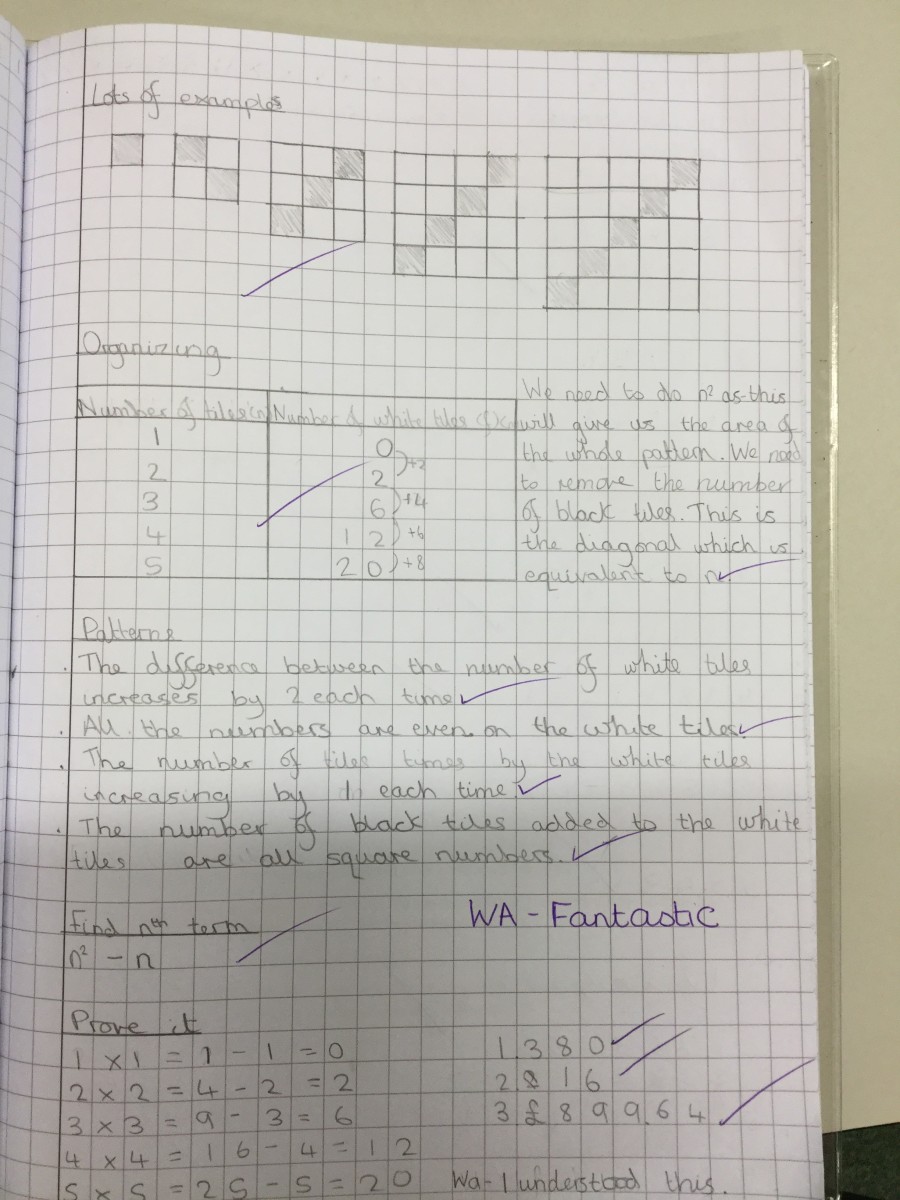 Lots of examples
Organizing
Number of tiles (n) Number of white tiles
1 0
+2
2 2
+4
3 6
+6
4 12
+8
5 20
We need to do n² as this
will give us the area of
the whole pattern. We need
to remove the number
of black tiles. This is
the diagonal which is
equivalent to n
Patterns
. The difference between the number of white tiles
increases by 2 each time
. All the numbers are even on the white tiles.
. The number of tiles tymes by the white tiles
increasing by 1 each time.
. The number of black tiles added to the white
tiles are all square numbers.
WA - Fantastic
Find nth term
n² - n
Prove it
1 x 1 = 1 - 1 = 0
2 x 2 = 4 - 2 = 2
3 x 3 = 9 - 3 = 6
4 x 4 = 16 - 4 = 12
5 x 5 = 25 - 5 = 20
1. 380
2 16
3 £899.64
Wa - I understood this.